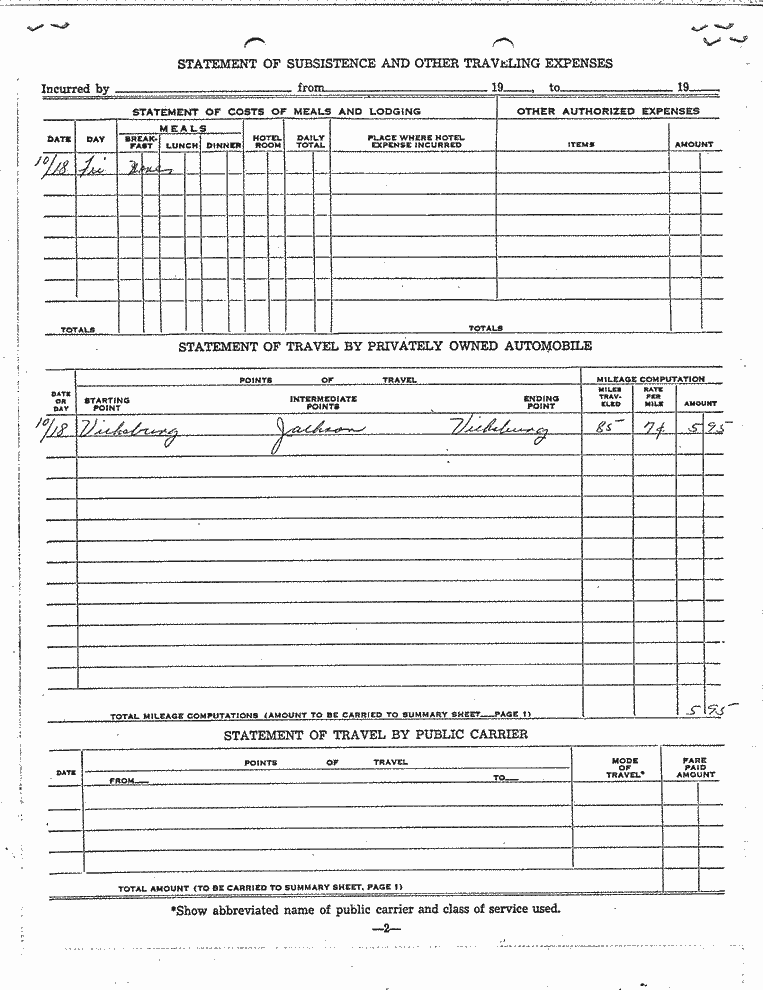 STATEMENT OF SUBSISTENCE AND OTHER TRAVELING EXPENSES
Incurred by from 19 , to 19
STATEMENT OF COSTS OF MEALS AND LODGING OTHER AUTHORIZED EXPENSES
DATE DAY MEALS BREAK-FAST LUNCH DINNER HOTEL ROOM DAILY TOTAL PLACE WHERE HOTEL EXPENSE INCURRED ITEMS AMOUNT
10/18 Fri None
TOTALS TOTALS
STATEMENT OF TRAVEL BY PRIVATELY OWNED AUTOMOBILE
POINTS OF TRAVEL MILEAGE COMPUTATION
DATE OR DAY STARTING POINT INTERMEDIATE POINTS ENDING POINT MILES TRAV-ELED RATE PER MILE AMOUNT
10/18 Vicksburg Jackson Vicksburg 85 7¢ 5 95
TOTAL MILEAGE COMPUTATIONS (AMOUNT TO BE CARRIED TO SUMMARY SHEET—PAGE 1) 5 95
STATEMENT OF TRAVEL BY PUBLIC CARRIER
DATE POINTS OF TRAVEL MODE OF TRAVEL* FARE PAID AMOUNT
FROM— TO—
TOTAL AMOUNT (TO BE CARRIED TO SUMMARY SHEET, PAGE 1)
*Show abbreviated name of public carrier and class of service used.
—2—